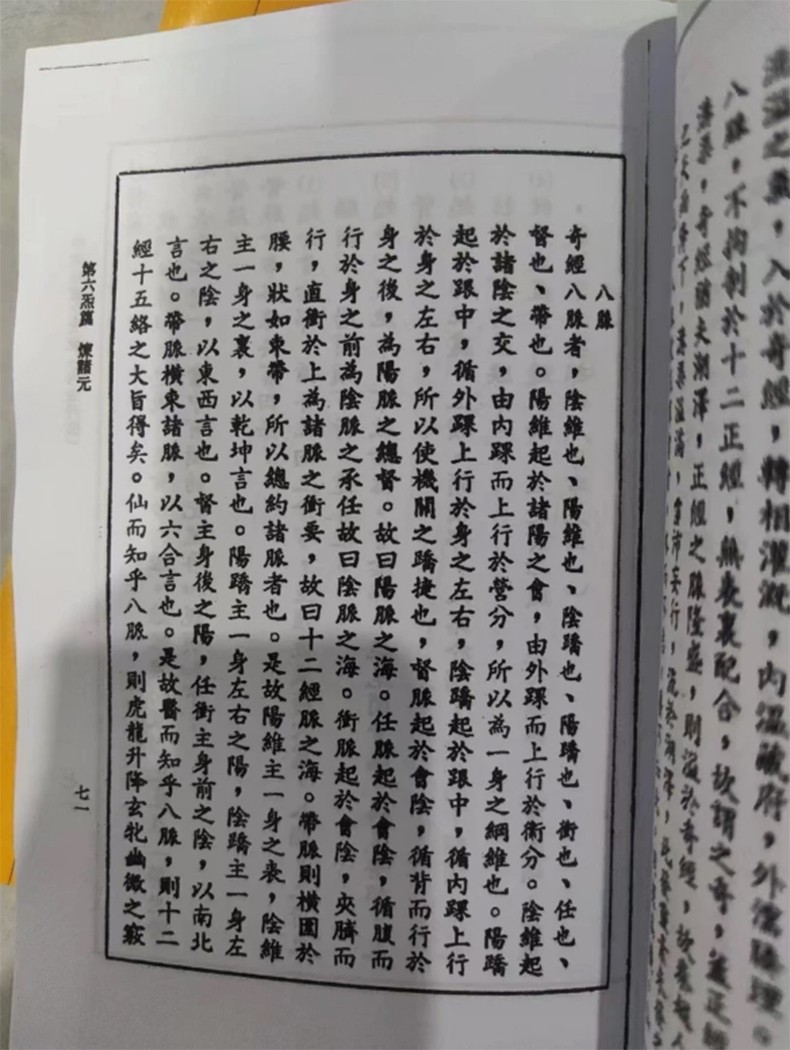 滿溢之氣，入於奇經，轉相灌溉，內溫藏府，外濡腠理。
八脈，不拘制於十二正經，無表裏配合，故謂之奇，蓋正經
八脈
奇經八脈者，陰維也、陽維也、陰蹻也、陽蹻也、衝也、任也、
督也、帶也。陽維起於諸陽之會，由外踝而上行於衛分。陰維起
於諸陰之交，由內踝而上行於營分，所以為一身之綱維也。陽蹻
起於跟中，循外踝上行於身之左右，陰蹻起於跟中，循內踝上行
於身之左右，所以使機關之蹻捷也，督脈起於會陰，循背而行於
身之後，為陽脈之總督。故曰陽脈之海。任脈起於會陰，循腹而
行於身之前為陰脈之承任故曰陰脈之海。衝脈起於會陰，夾臍而
行，直衝於上為諸脈之衝要，故曰十二經脈之海。帶脈則橫圍於
腰，狀如束帶，所以總約諸脈者也。是故陽維主一身之表，陰維
主一身之裏，以乾坤言也。陽蹻主一身左右之陽，陰蹻主一身左
右之陰，以東西言也。督主身後之陽，任衝主身前之陰，以南北
言也。帶脈橫束諸脈，以六合言也。是故醫而知乎八脈，則十二
經十五絡之大旨得矣。仙而知乎八脈，則虎龍升降玄牝幽微之竅
第六炁篇 煉諸元
七一